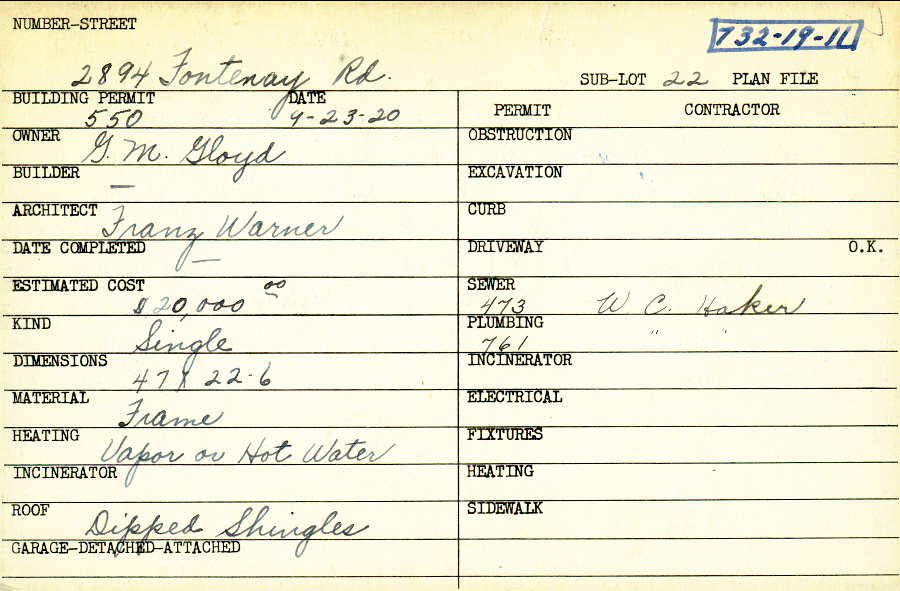 NUMBER-STREET
732-19-11
2894 Fontenay Rd.
SUB-LOT 22 PLAN FILE
BUILDING PERMIT DATE
550 9-23-20
PERMIT CONTRACTOR
OWNER G. M. Gloyd
OBSTRUCTION
BUILDER —
EXCAVATION
ARCHITECT Franz Warner
CURB
DATE COMPLETED —
DRIVEWAY O.K.
ESTIMATED COST $20,000 00
SEWER
473 W. C. Haker
KIND Single
PLUMBING
761 " "
DIMENSIONS 47 X 22-6
INCINERATOR
MATERIAL Frame
ELECTRICAL
HEATING Vapor or Hot Water
FIXTURES
INCINERATOR
HEATING
ROOF Dipped Shingles
SIDEWALK
GARAGE-DETACHED-ATTACHED